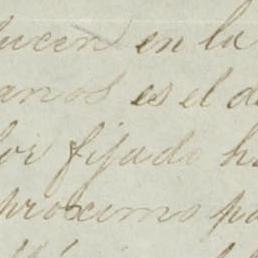 ucen en la
anos es el d
or fijado h
proximo pa